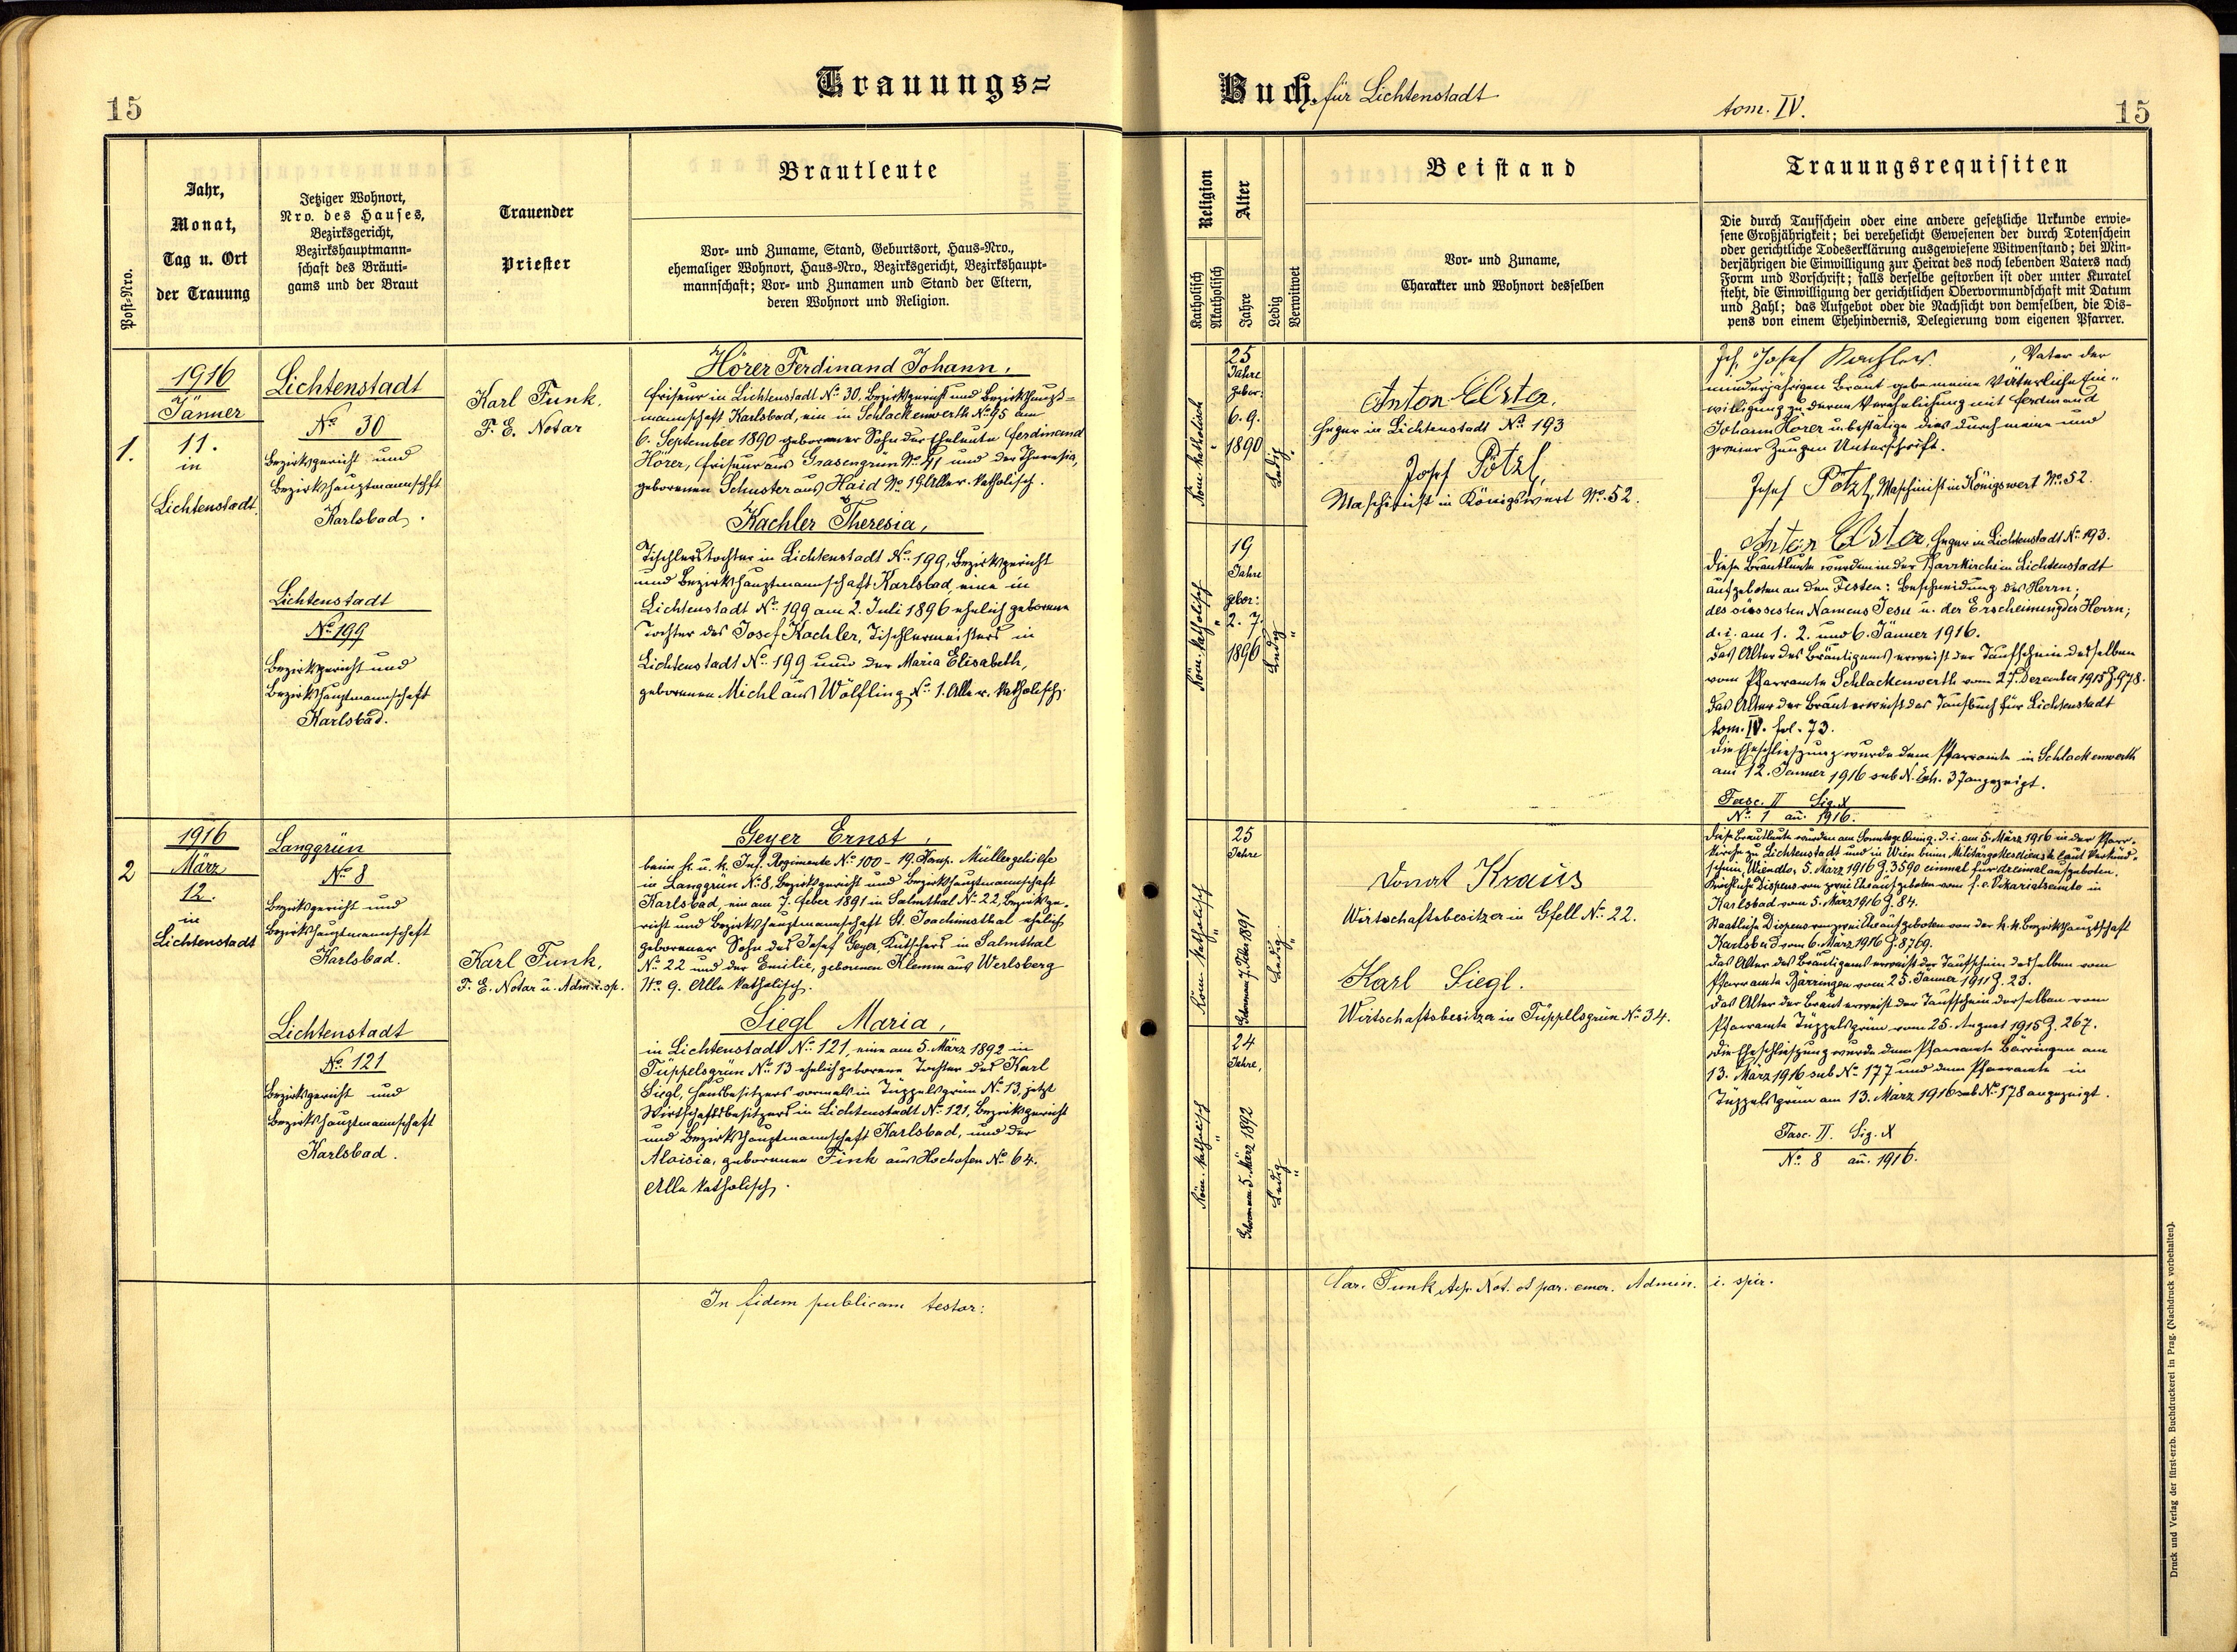 15
Trauungs=
Post=Nro.
Jahr,
Monat,
Tag u. Ort
der Trauung
Jetziger Wohnort,
Nro. des Hauses,
Bezirksgericht,
Bezirkshauptmann-
schaft des Bräuti-
gams und der Braut
Trauender
Priester
Brautleute
Vor- und Zuname, Stand, Geburtsort, Haus-Nro.,
ehemaliger Wohnort, Haus-Nro., Bezirksgericht, Bezirkshaupt-
mannschaft; Vor- und Zunamen und Stand der Eltern,
deren Wohnort und Religion.
1.
1916
Jänner
11.
in
Lichtenstadt.
Lichtenstadt
No 30
Bezirksgericht und
Bezirkshauptmannschft
Karlsbad.
Lichtenstadt
No 199
Bezirksgericht und
Bezirkshauptmannschaft
Karlsbad.
Karl Funk,
F. E. Notar
Hörer Ferdinand Johann,
Friseur in Lichtenstadt No 30, Bezirksgericht und Bezirkshaupt=
mannschaft Karlsbad, ein in Schlackenwerth No 95 am
6. September 1890 geborener Sohn der Eheleute Ferdinand
Hörer, Friseur aus Grasengrün No 41 und der Theresia,
geborenen Schuster aus Haid No 19. Alle r. katholisch.
Kachler Theresia,
Tischlerstochter in Lichtenstadt No 199, Bezirksgericht
und Bezirkshauptmannschaft Karlsbad, eine in
Lichtenstadt No 199 am 2. Juli 1896 ehelich geborene
Tochter des Josef Kachler, Tischlermeisters in
Lichtenstadt No 199 und der Maria Elisabeth,
geborenen Michl aus Wölfling No 1. Alle r. katholisch.
2
1916
März
12.
in
Lichtenstadt
Langgrün
No 8
Bezirksgericht und
Bezirkshauptmannschaft
Karlsbad.
Lichtenstadt
No 121
Bezirksgericht und
Bezirkshauptmannschaft
Karlsbad.
Karl Funk,
F. E. Notar u. Adm. i. sp.
Geyer Ernst,
beim k. u. k. Inf. Regimente No 100 - 19. Komp. Müllergehilfe
in Langgrün No 8, Bezirksgericht und Bezirkshauptmannschaft
Karlsbad, ein am 7. Feber 1891 in Salmthal No 22, Bezirksge-
richt und Bezirkshauptmannschaft St. Joachimsthal ehelich
geborener Sohn des Josef Geyer, Kutschers in Salmthal
No 22 und der Emilie, geborenen Klemm aus Werlsberg
No 9. Alle katholisch.
Siegl Maria,
in Lichtenstadt No 121, eine am 5. März 1892 in
Tüppelsgrün No 13 ehelich geborene Tochter des Karl
Siegl, Hausbesitzers vormals in Tüppelsgrün No 13, jetzt
Wirtschaftsbesitzers in Lichtenstadt No 121, Bezirksgericht
und Bezirkshauptmannschaft Karlsbad, und der
Aloisia, geborenen Fink aus Hochofen No 64.
Alle katholisch.
In fidem publicam testor:
Buch. für Lichtenstadt
tom. IV.
15
Religion
Katholisch
Akatholisch
Alter
Jahre
Ledig
Verwitwet
Beistand
Vor- und Zuname,
Charakter und Wohnort desselben
Trauungsrequisiten
Die durch Taufschein oder eine andere gesetzliche Urkunde erwie-
sene Großjährigkeit; bei verehelicht Gewesenen der durch Totenschein
oder gerichtliche Todeserklärung ausgewiesene Witwenstand; bei Min-
derjährigen die Einwilligung zur Heirat des noch lebenden Vaters nach
Form und Vorschrift; falls derselbe gestorben ist oder unter Kuratel
steht, die Einwilligung der gerichtlichen Obervormundschaft mit Datum
und Zahl; das Aufgebot oder die Nachsicht von demselben, die Dis-
pens von einem Ehehindernis, Delegierung vom eigenen Pfarrer.
Röm. katholisch
25
Jahre
gebor:
6. 9.
1890
Ledig
Anton
Heger in Lichtenstadt No 193
Josef Pötzl,
Maschinist in Königswert No. 52.
Röm. katholisch
19
Jahre
gebor:
2. 7.
1896
Ledig
Ich, Josef Kachler, Vater der
minderjährigen Braut gebe meine väterliche Ein-
willigung zu deren Verehelichung mit Ferdinand
Johann Hörer u. bestätige dies durch meine und
zweier Zeugen Unterschrift.
Josef Pötzl, Maschinist in Königswert No. 52.
Anton Heger in Lichtenstadt No 193.
Diese Brautleute wurden in der Pfarrkirche in Lichtenstadt
aufgeboten an den Festen: Beschneidung des Herrn;
des süssesten Namens Jesu u. der Erscheinung des Herrn;
d. i. am 1. 2. und 6. Jänner 1916.
Das Alter des Bräutigams erweist der Taufschein desselben
vom Pfarramte Schlackenwerth vom 27. Dezember 1915 Z. 978.
Das Alter der Braut erweist das Taufbuch für Lichtenstadt
tom. IV. fol. 73.
Die Eheschließung wurde dem Pfarramte in Schlackenwerth
am 12. Jänner 1916 sub N. Exh. 37 angezeigt.
Fasc. II Sig. X
No 1 an. 1916.
Röm. katholisch
25
Jahre
Geboren am 7. Feber 1891
Ledig
Donat Kraus
Wirtschaftsbesitzer in Gfell No 22.
Karl Siegl.
Wirtschaftsbesitzer in Tüppelsgrün No 34.
Röm. katholisch
24
Jahre,
Geboren am 5. März 1892
Ledig
Diese Brautleute wurden am Sonntage Quinq. d. i. am 5. März 1916 in der Pfarr-
kirche zu Lichtenstadt und in Wien beim Militärgottesdienste laut Verkünd-
schein, Wien dto. 5. März 1916 Z. 3590 einmal für dreimal aufgeboten.
Kirchliche Dispens von zwei Eheaufgeboten vom f. e. Vikariatsamte in
Karlsbad vom 5. März 1916 Z. 84.
Staatliche Dispens von zwei Eheaufgeboten von der k. k. Bezirkshauptschaft
Karlsbad vom 6. März 1916 Z. 8769.
Das Alter des Bräutigams erweist der Taufschein desselben vom
Pfarramte Bärringen vom 25. Jänner 1911 Z. 23.
Das Alter der Braut erweist der Taufschein derselben vom
Pfarramte Tüppelsgrün vom 25. August 1915 Z. 267.
Die Eheschließung wurde dem Pfarramte Bärringen am
13. März 1916 sub No 177 und dem Pfarramte in
Tüppelsgrün am 13. März 1916 sub No 178 angezeigt.
Fasc. II. Sig. X
No 8 an. 1916.
Car. Funk, Aep. Not. et par. emer. Admin. i. spir.
Druck und Verlag der fürst-erzb. Buchdruckerei in Prag. (Nachdruck vorbehalten).